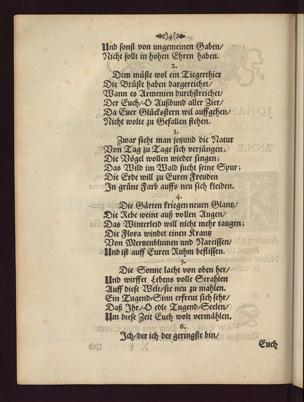 (4)
Und sonst von ungemeinen Gaben/
Nicht sollt in hohen Ehren haben.
2.
Dem müste wol ein Tiegerthier
Die Brüste haben dargereichet/
Wann es Armenien durchstreichet/
Der Euch/O Außbund aller Zier/
Da Euer Glücksstern wil auffgehen/
Nicht wolte zu Gefallen stehen.
3.
Zwar sieht man jetzund die Natur
Von Tag zu Tage sich verjüngen/
Die Vögel wollen wieder singen;
Das Wild im Wald sucht seine Spur;
Die Erde will zu Euren Freuden
In grüne Farb auffs neu sich kleiden.
4.
Die Gärten kriegen neuen Glantz/
Die Rebe weint auß vollen Augen/
Das Winterleid will nicht mehr taugen;
Die Flora windet einen Krantz
Von Mertzenblumen und Narcissen/
Und ist auff Euren Ruhm beflissen.
5.
Die Sonne lacht von oben her/
Und wirffet Lebens volle Strahlen
Auff diese Welt/sie neu zu mahlen.
Ein Tugend-Sinn erfreut sich sehr/
Daß Ihr/O edle Tugend-Seelen/
Um diese Zeit Euch wolt vermählen.
6.
Ich/der ich der geringste bin/
Euch